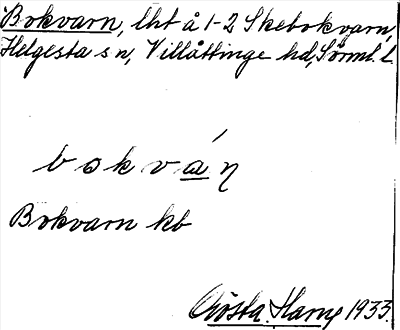 Bokvarn, lht å 1-2 Skebokvarn,
Helgesta sn, Villåttinge hd, Sörml. l.
bokvá̱ɳ
Bokvarn kb
Gösta Harry 1933.